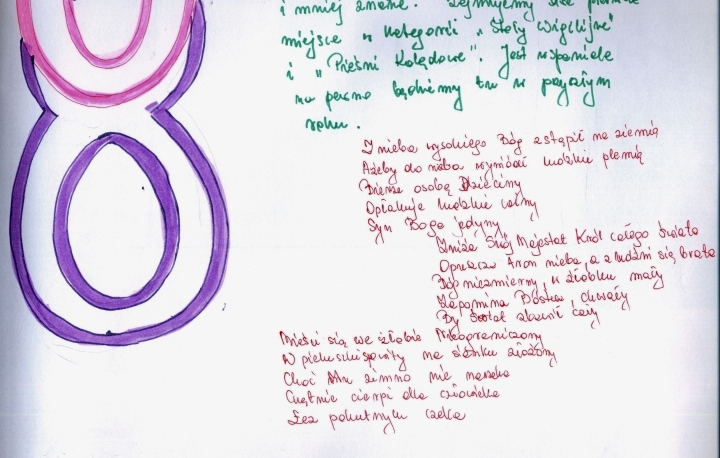 i mniej znane. Zajmujemy też pierwsze
miejsce w kategorii "Stoły Wigilijne"
i "Pieśni Kolędowe". Jest wspaniale
na pewno będziemy tu w przyszłym
roku.
Z nieba wysokiego Bóg zstąpił na ziemię
Ażeby do nieba wywiódł ludzkie plemię
Bierze osobą Dzieciny
Opłakuje ludzkie winy
Syn Boga jedyny
Zniża Swój Majestat Król całego świata
Opuszcza tron nieba, a z ludźmi się brata
Bóg niezmierny, w żłobku mały
Zapomina Boska chwały
By świat zbawić cały
Mieści się we żłobie Nieograniczony
W pieluszki spowity na sianku złożony
Choć Mu zimno nie narzeka
Chętnie cierpi dla człowieka
Łez pokutnych czeka